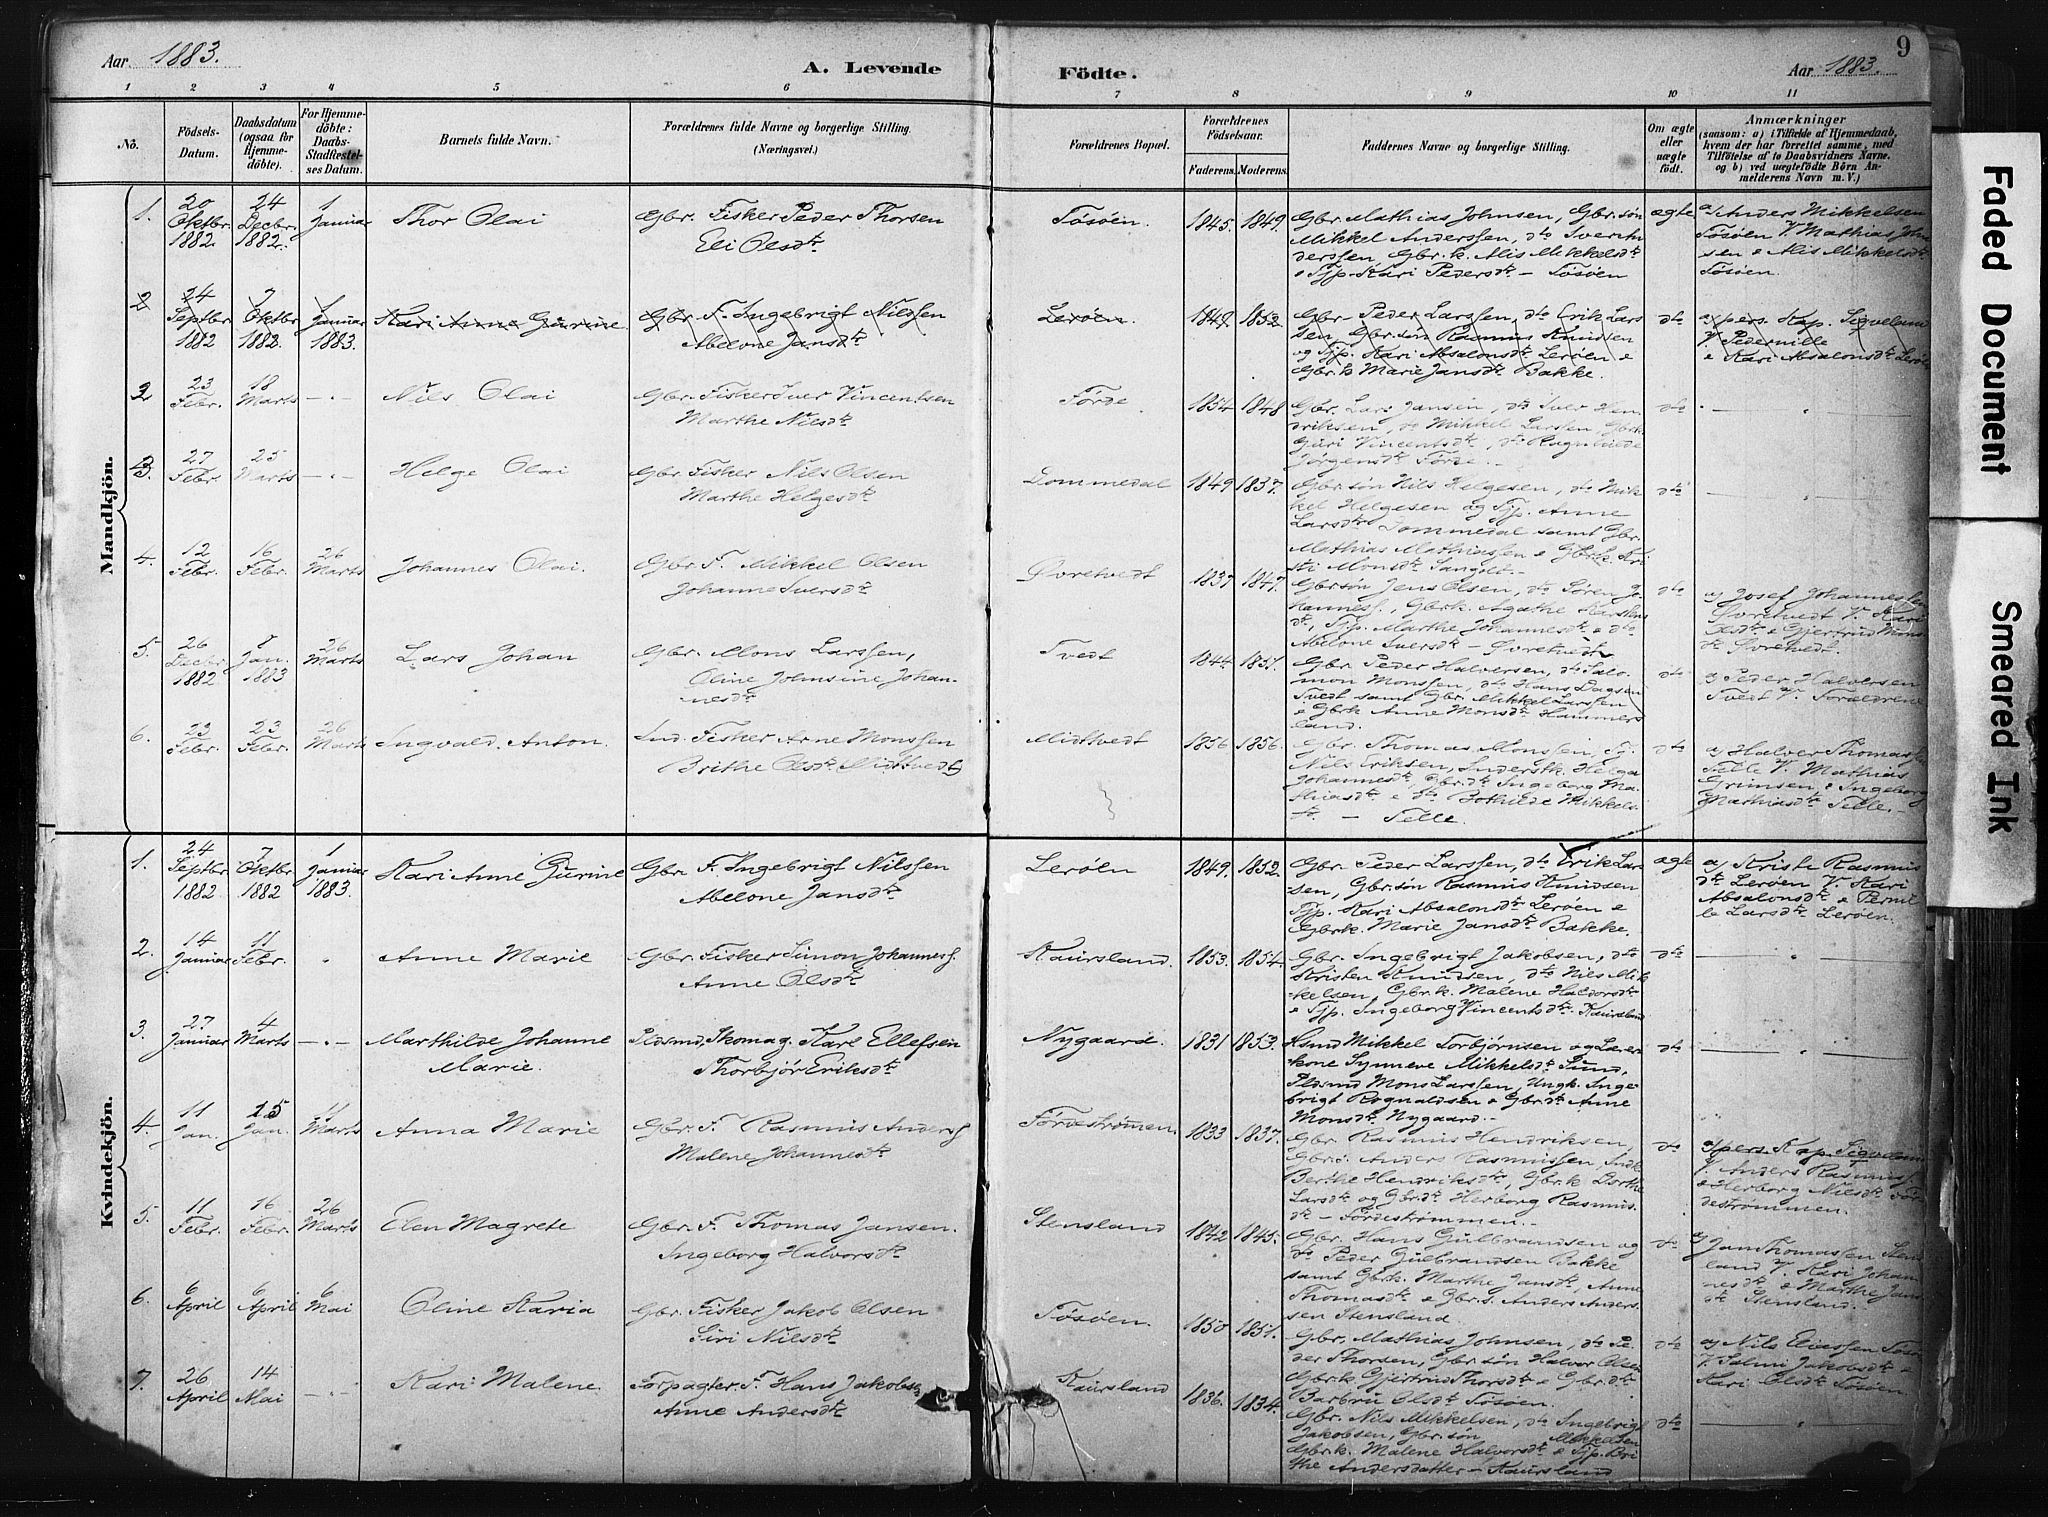 Aar 1883. A. Levende Födte. Aar 1883. 9
1 2 3 4 5 6 7 8 9 10 11
No. Födsels-Datum. Daabsdatum (ogsaa for Hjemme-döbte). For Hjemme-döbte: Daabs-Stadfæstel-ses Datum. Barnets fulde Navn. Forældrenes fulde Navne og borgerlige Stilling. (Næringsvei.) Forældrenes Bopæl. Forældrenes Födselsaar. Faderens. Moderens. Faddernes Navne og borgerlige Stilling. Om ægte eller uægte födt. Anmærkninger (saasom: a) i Tilfælde af Hjemmedaab, hvem der har forrettet samme, med Tilföielse af to Daabsvidners Navne. og b) ved uægtefödte Börn An-melderens Navn m. V.)
Mandkjön.
1. 20 Oktbr. 1882 24 Decbr. 1882. 1 Januar Thor Olai Gbr. Fisker Peder Thorsen
Eli Olsdtr Tösöen. 1845. 1849. Gbr. Mathias Johnsen, Gbr.sön
Mikkel Anderssen, dto Iver An-
derssen, Gbr.k. Alis Mikkelsdtr
& Tjp. Kari Pedersdtr - Tösöen ægte a) Anders Mikkelsen
Tösöen V. Mathias John
sen & Alis Mikkelsdtr
Tösöen.
2 24 Septbr. 1882 7 Oktbr. 1882. 1 Januar 1883. Kari Anne Gurine. Gbr. F. Ingebrigt Nilssen
Abelone Jansdtr Leröen. 1849. 1852. Gbr. Peder Larssen, dto Erik Lars
sen, Gbr.sön Rasmus Knudsen
og Tjp. Kari Absalonsdtr Leröen &
Gbr.k. Marie Jansdtr Bakke. dto a) pers. Kap. Sigveland
V. Pedernille
& Kari Absalonsdtr Leröen
2 23 Febr. 18 Marts - " - Nils Olai Gbr. Fisker Iver Vincentsen
Marthe Nilsdtr Förde. 1854. 1848 Gbr. Lars Jansen, dto Iver Hen-
driksen, do Mikkel Larsen, Gbr.k.
Guri Vincentsdtr, dto Ragnhilde
Jörgensdtr Förde. - dto - " -
3. 27 Febr. 25 Marts - " - Helge Olai Gbr. Fisker Nils Olsen
Marthe Helgesdtr Dommedal 1849 1837. Gbr.sön Nils Helgesen, dto Mik-
kel Helgesen og Tjp. Anne
Larsdtr Dommedal samt Gbr.
Mathias Mathiassen & Gbr.k. Kri
sti Monsdtr Sangolt - dto - " -
4. 12 Febr. 16 Febr. 26 Marts Johannes Olai. Gbr. F. Mikkel Olsen
Johanne Iversdtr Övretvedt 1837 1847. Gbr.sön Jens Olsen, dto Sören Jo-
hanness., Gbr.k. Agathe Karlsens
dtr, Tjp. Marthe Johannesdtr & dto
Abelone Iversdtr - Övretvedt dto a) Josef Johannessen
Övretvedt V. Kari
Olsdtr & Gjertrud Mons
dtr Övretvedt.
5. 26 Decbr. 1882 8 Jan. 1883 26 Marts Lars Johan Gbr. Mons Larssen,
Oline Johnsine Johan-
nesdtr Tvedt 1844. 1851. Gbr. Peder Halversen, dto Salo-
mon Monssen, dto Hans Dagsen
Tvedt samt Gbr. Mikkel Larssen
& Gbr.k. Anne Monsdtr Hammers
land. dto a) Peder Halversen
Tvedt V. Forældrene
6. 23 Febr. 23 Febr. 26 Marts Ingvald Anton. Ind. Fisker Arne Monssen
Brithe Olsdtr Midttvedt Midttvedt 1856. 1856. Gbr. Thomas Monssen, F.
Nils Eriksen, Inderstk. Helga
Johannesdtr, Gbr.dtr Ingeborg Ma-
thiasdtr & dto Bothilde Mikkels
dtr - Telle. dto a) Halver Thomassen
Telle V. Mathias
Grimsen, & Ingeborg
Mathiasdtr Telle. -
Kvindekjön.
1. 24 Septbr. 1882 7 Oktbr. 1882 1 Januar 1883. Kari Anne Gurine Gbr. F. Ingebrigt Nilssen
Abelone Jansdtr Leröen 1849. 1852. Gbr. Peder Larssen, dto Erik Lars
sen, Gbr.sön Rasmus Knudsen
Tjp. Kari Absalonsdtr Leröen &
Gbr.k. Marie Jansdtr Bakke. ægte a) Kriste Rasmus
dtr Leröen V. Kari
Absalonsdtr & Pernil
le Larsdtr Leröen.
2. 14 Januar 11 Febr. " Anne Marie Gbr. Fisker Simon Johanness.
Anne Olsdtr Kaursland. 1853. 1854. Gbr. Ingebrigt Jakobsen, dto
Kristen Knudsen, dto Nils Mik
kelsen, Gbr.k. Malene Haldorsdtr
& Tjp. Ingeborg Vincentsdtr. Kaursland dto - " -
3. 27 Januar 4 Marts - " - Marthilde Johanne
Marie. Pldsmd, Skomag. Karl Ellefsen
Thorbjör Eriksdtr Nygaard. 1831 1853. Hsmd Mikkel Torbjörnsen og Lærer-
kone Synneve Mikkelsdtr Sund,
Pldsmd Mons Larssen, Ungk. Inge-
brigt Rognaldsen & Gbr.dtr Anne
Monsdtr Nygaard. - dto - " -
4. 11 Jan. 15 Jan. 11 Marts Anna Marie Gbr. F. Rasmus Anders.
Malene Johannesdtr Fördeströmmen. 1833 1837. Gbr. Rasmus Hendriksen,
Gbr.s. Anders Rasmussen, Indk.
Berthe Hendriksdtr, Gbr.k. Dorthe
Larsdtr og Gbr.dtr Herborg Rasmus
dtr - Fördeströmmen. - dto a) pers. Kap. Sigveland
V. Anders Rasmus.
& Herborg Nilsdtr För
deströmmen.
5. 11 Febr. 16 Febr. 26 Marts Elen Magrete Gbr. F. Thomas Jansen.
Ingeborg Halvorsdtr Stensland 1842 1845. Gbr. Hans Gulbrandsen og
dto Peder Gulbrandsen Bakke
samt Gbr.k. Marthe Jansdtr, Anne
Thomasdtr & Gbr.s. Anders Anders
sen Stensland. dto a) Jan Thomassen Stens
land V. Kari Johan
nesdtr & Marthe Jans
dtr Stensland.
6. 6 April 6 April 6 Mai Oline Karia Gbr. Fisker Jakob Olsen
Siri Nilsdtr Tösöen. 1850 1851. Gbr. Mathias Johnsen, dto Pe-
der Thorsen, Gbr.sön Halvor Olsen
Gbr.k. Gjertrud Thorsdtr & Gbr.dtr
Barbru Olsdtr Tösöen. dto a) Nils Elvessen Tösö
V. Salmi Jakobsdtr &
Kari Olsdtr Tösöen.
7. 26 April 14 Mai - " - Kari Malene. Forpagter. F. Hans Jakobsen
Anne Andersdtr Kaursland 1836. 1834. Gbr. Nils Mikkelsen, dto Ingebrigt
Jakobsen, Gbr.sön Mikkelsen
Gbr.k. Malene Halvorsdtr & Tjp. Bri
the Andersdatter - Kaursland dto - " -
Faded Document
Smeared Ink